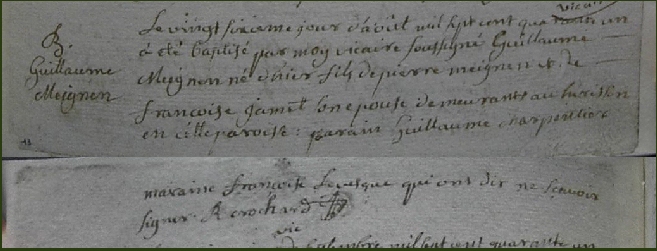 B.
Guillaume
Meignen
Le vingt sixieme jour d'avril mil sept cent quarante un
a été baptisé par moy vicaire soussigné Guillaume
Meignen né d'hier fils de pierre meignen et de
francoise jamet son epouse demeurants au
en cette paroise : parain Guillaume charpentier
maraine francoise Levesque qui ont dit ne scavoir
signer. R crochard
vic
mil sept cent quarante un